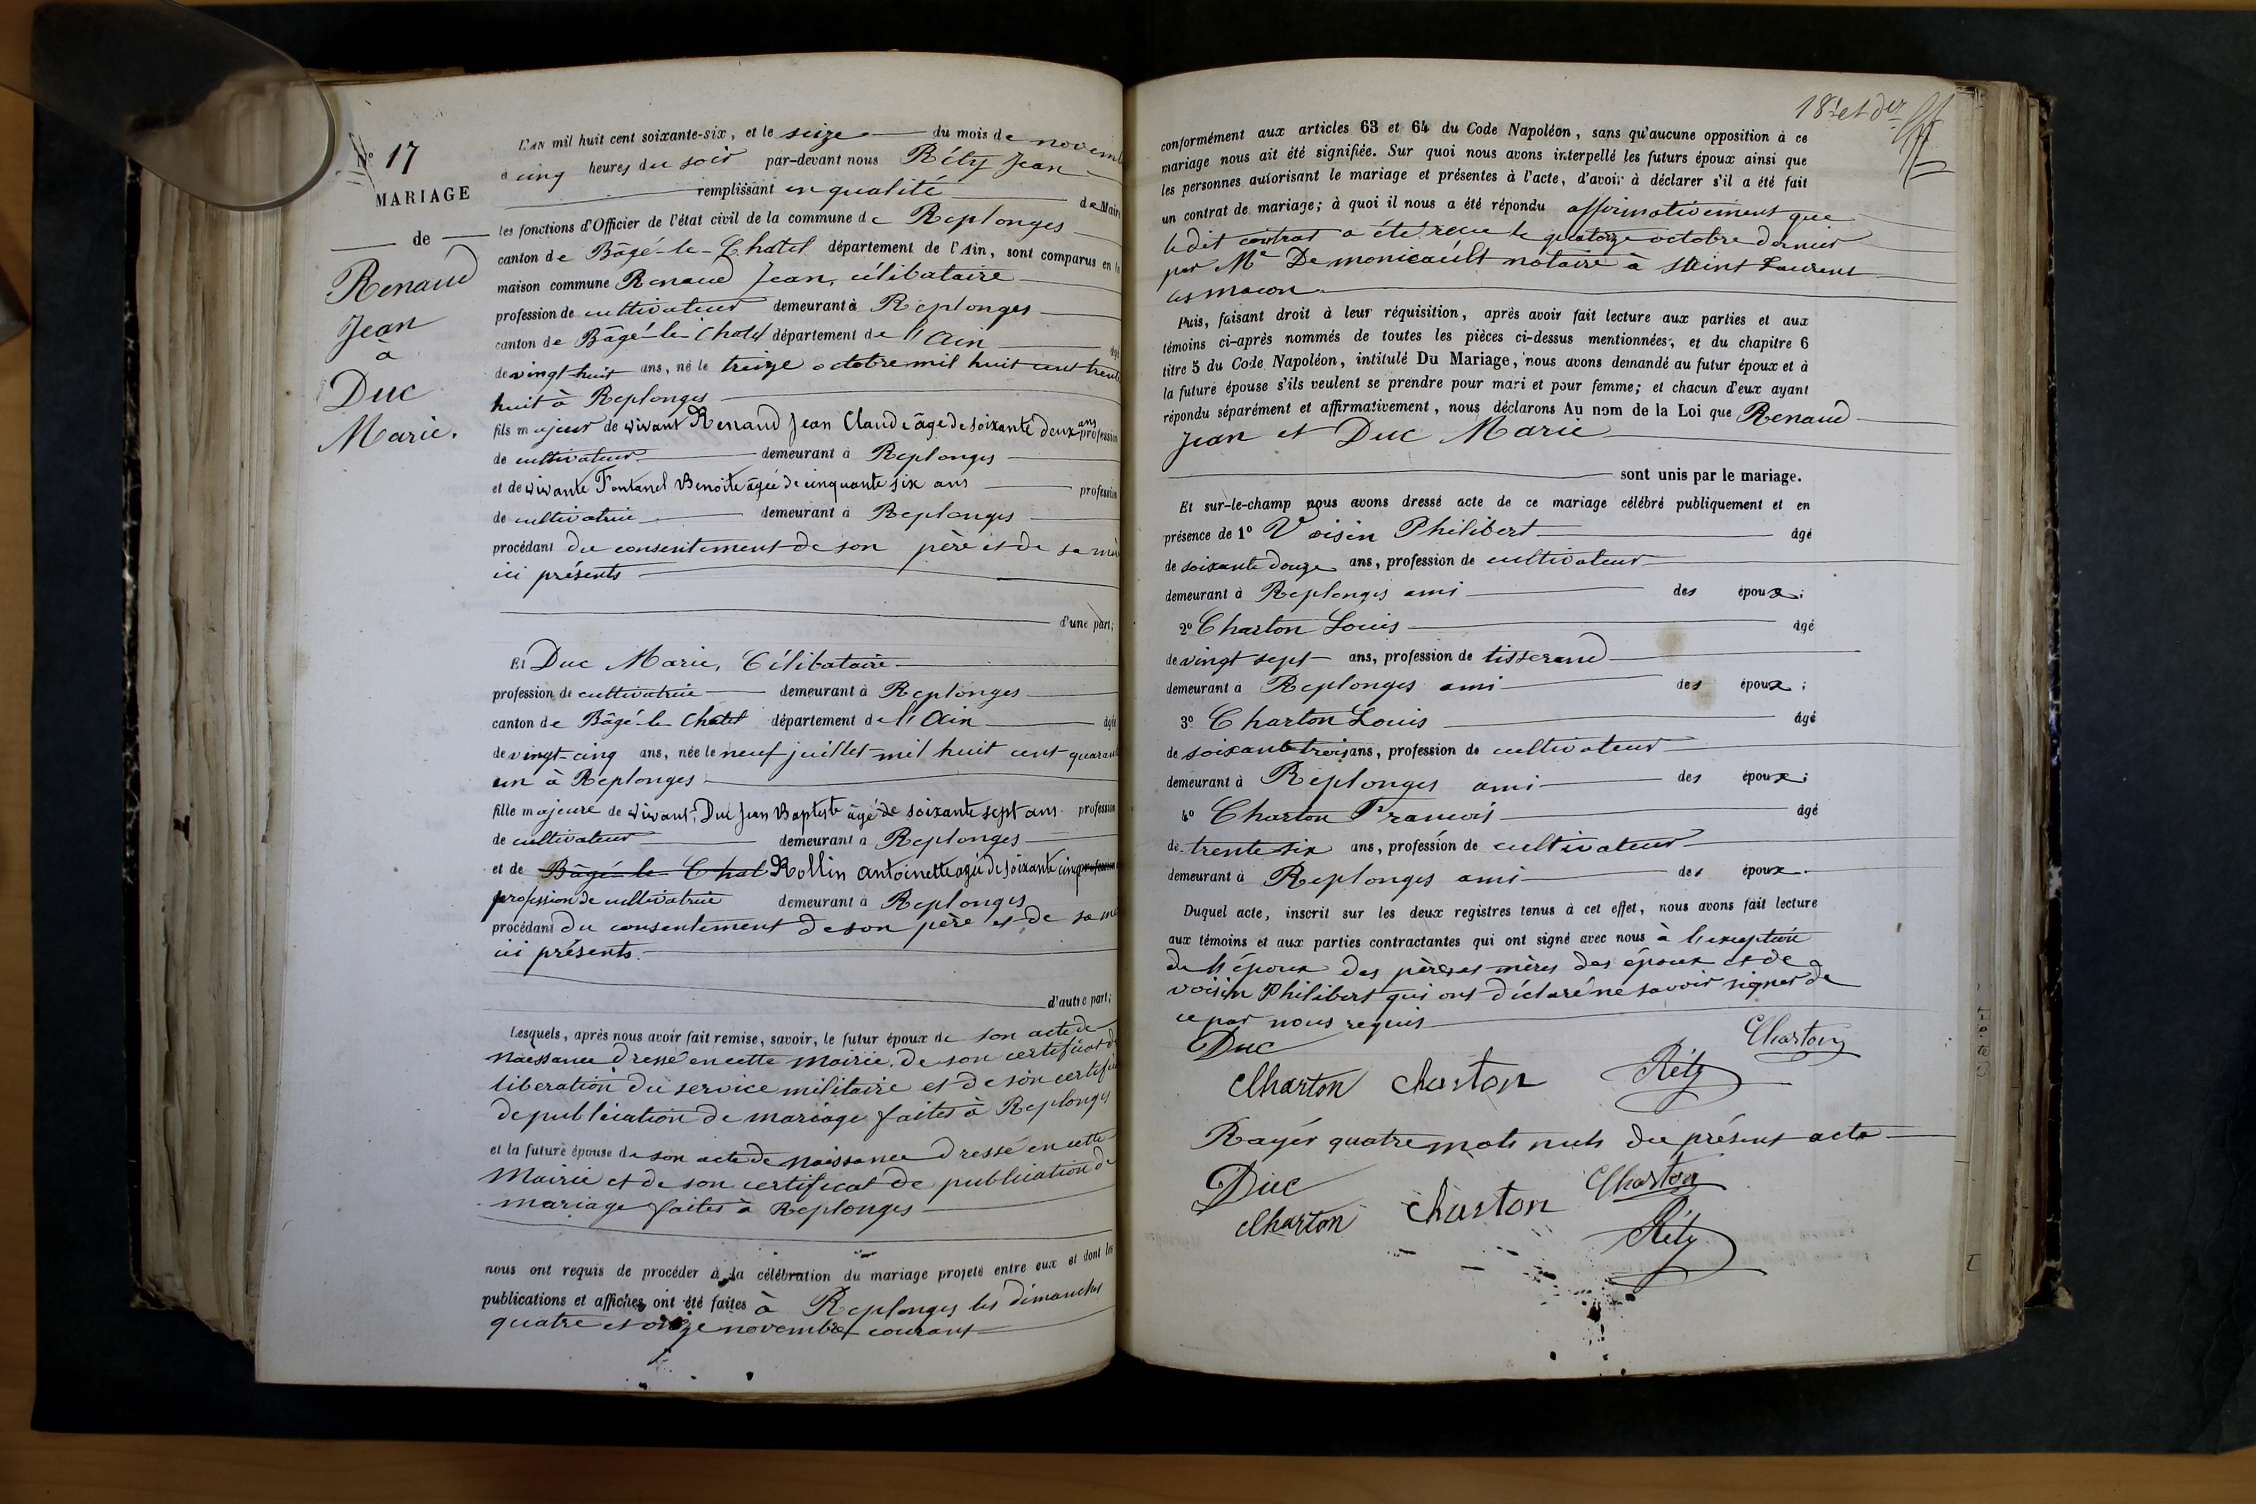 N° 17
MARIAGE
de
Renaud
Jean
à
Duc
Marie.
L'AN mil huit cent soixante-six, et le seize du mois de novem
à cinq heures du soir par-devant nous Réty Jean
remplissant en qualité de Maire
les fonctions d'Officier de l'état civil de la commune de Replonges
canton de Bâgé-le-Chatel département de l'Ain, sont comparus en la
maison commune Renaud Jean, célibataire
profession de cultivateur demeurant à Replonges
canton de Bâgé-le-Chatel département de l'Ain âgé
de vingt-huit ans, né le treize octobre mil huit cent trente
huit à Replonges
fils majeur de vivant Renaud Jean Claude âgé de soixante deux ans profession
de cultivateur demeurant à Replonges
et de vivante Fontanel Benoite âgée de cinquante six ans profession
de cultivatrice demeurant à Replonges
procédant du consentement de son père et de sa mère
ici présents
d'une part;
Et Duc Marie, Célibataire
profession de cultivatrice demeurant à Replonges
canton de Bâgé-le-Chatel département de l'Ain âgée
de vingt-cinq ans, née le neuf juillet mil huit cent quarante
un à Replonges
fille majeure de vivant: Duc Jean Baptiste âgé de soixante sept ans profession
de cultivateur demeurant à Replonges
et de Bâgé-le-Chat Rollin Antoinette agée de soixante cinq profession
profession de cultivatrice demeurant à Replonges
procédant du consentement de son père et de sa me
ici présents.
d'autre part;
Lesquels, après nous avoir fait remise, savoir, le futur époux de son acte de
naissance dressé en cette Mairie, de son certificat de
libération du service militaire et de son certificat
de publication de mariage faites à Replonges
et la future épouse de son acte de naissance dressé en cette
Mairie et de son certificat de publication de
mariage faites à Replonges
nous ont requis de procéder à la célébration du mariage projeté entre eux et dont les
publications et affiches ont été faites à Replonges les dimanches
quatre et onze novembre courant
18e et der
conformément aux articles 63 et 64 du Code Napoléon, sans qu'aucune opposition à ce
mariage nous ait été signifiée. Sur quoi nous avons interpellé les futurs époux ainsi que
les personnes autorisant le mariage et présentes à l'acte, d'avoir à déclarer s'il a été fait
un contrat de mariage; à quoi il nous a été répondu affirmativement que
le dit contrat a été reçu le quatorze octobre dernier
par Me Demonicault notaire à Saint Laurent
les macon
Puis, faisant droit à leur réquisition, après avoir fait lecture aux parties et aux
témoins ci-après nommés de toutes les pièces ci-dessus mentionnées, et du chapitre 6
titre 5 du Code Napoléon, intitulé Du Mariage, nous avons demandé au futur époux et à
la future épouse s'ils veulent se prendre pour mari et pour femme; et chacun d'eux ayant
répondu séparément et affirmativement, nous déclarons Au nom de la Loi que Renaud
Jean et Duc Marie
sont unis par le mariage.
Et sur-le-champ nous avons dressé acte de ce mariage célébré publiquement et en
présence de 1° Voisin Philibert âgé
de soixante douze ans, profession de cultivateur
demeurant à Replonges ami des époux;
2° Charton Louis âgé
de vingt sept ans, profession de tisserand
demeurant à Replonges ami des époux;
3° Charton Louis âgé
de soixante trois ans, profession de cultivateur
demeurant à Replonges ami des époux;
4° Charton Francois âgé
de trente six ans, profession de cultivateur
demeurant à Replonges ami des époux.
Duquel acte, inscrit sur les deux registres tenus à cet effet, nous avons fait lecture
aux témoins et aux parties contractantes qui ont signé avec nous à l'exception
de l'époux des pères et mères des époux et de
voisin Philibert qui ont déclaré ne savoir signer de
ce par nous requis
Duc Charton
Charton Charton Réty
Rayés quatre mots nuls du présent acte
Duc Charton
Charton Charton
Réty